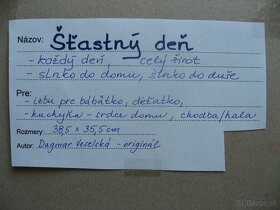 Názov: Šťastný deň
- každý deň, celý život
- slnko do domu, slnko do duše
Pre:
- izbu pre bábätko, dieťatko,
- kuchyňa - srdce domu, chodba/hala
Rozmery: 38,5 x 35,5 cm
Autor: Dagmar Veselská - originál
bazos.sk